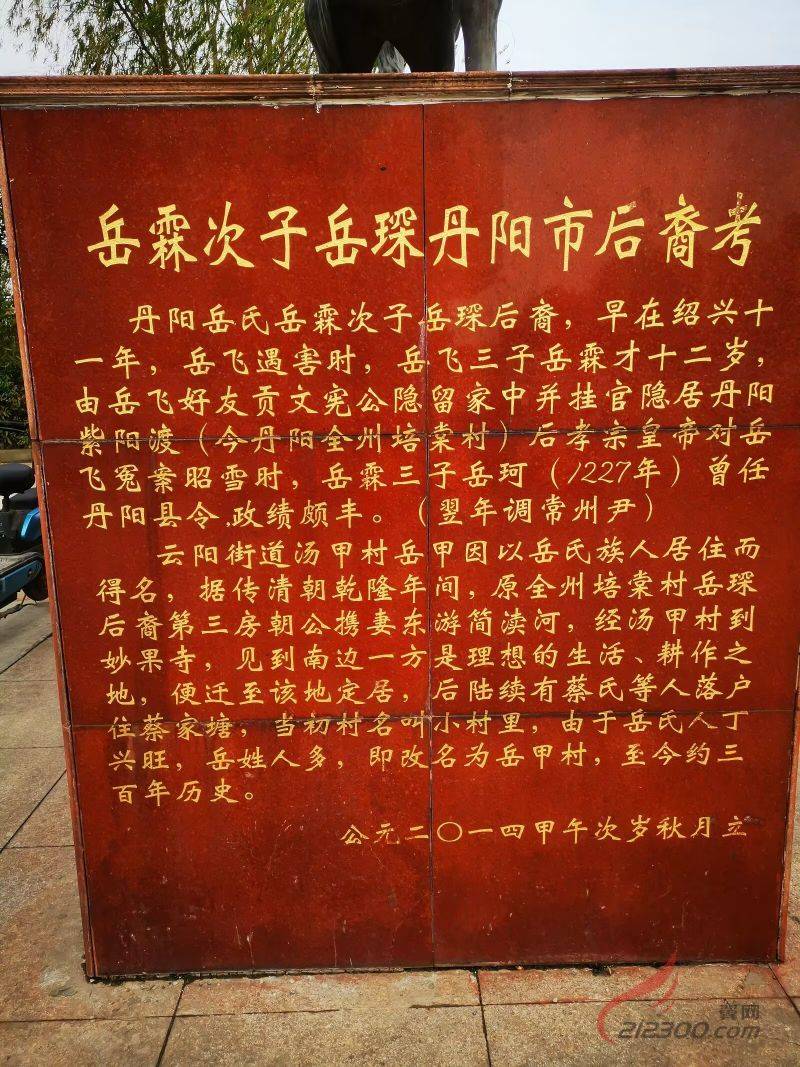 岳霖次子岳琛丹阳市后裔考
丹阳岳氏岳霖次子岳琛后裔，早在绍兴十
一年，岳飞遇害时，岳飞三子岳霖才十二岁，
由岳飞好友贡文宪公隐留家中并挂官隐居丹阳
紫阳渡（今丹阳全州培棠村）后孝宗皇帝对岳
飞冤案昭雪时，岳霖三子岳珂（1227年）曾任
丹阳县令.政绩颇丰。（翌年调常州尹）
云阳街道汤甲村岳甲因以岳氏族人居住而
得名，据传清朝乾隆年间，原全州培棠村岳琛
后裔第三房朝公携妻东游简渎河，经汤甲村到
妙果寺，见到南边一方是理想的生活、耕作之
地，便迁至该地定居，后陆续有蔡氏等人落户
住蔡家塘，当初村名叫小村里，由于岳氏人丁
兴旺，岳姓人多，即改名为岳甲村，至今约三
百年历史。
公元二〇一四甲午次岁秋月立
翼网
212300.com